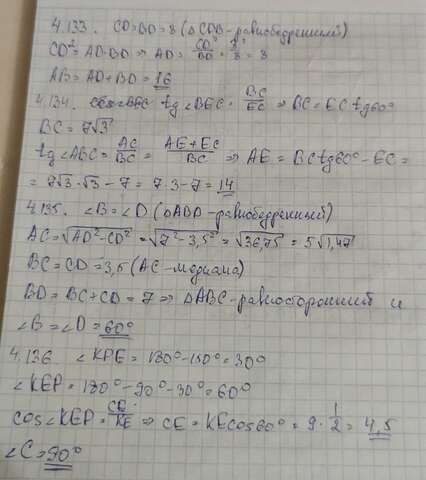 4.133. CD=BD=8 (△CDB-равнобедренный)
CD²=AD·BD ⇒ AD=CD²/BD=8²/8=8
AB=AD+BD=16
4.134. tg∠BEC=BC/EC ⇒ BC=EC tg60°
BC=7√3
tg∠ABC=AC/BC=AE+EC/BC ⇒ AE=BCtg60°-EC=
=7√3·√3-7=7·3-7=14
4.135. ∠B=∠D (△ABD-равнобедренный)
AC=√AD²-CD²=√7²-3,5²=√36,75=5√1,47
BC=CD=3,5 (AC-медиана)
BD=BC+CD=7 ⇒ △ABC-равносторонний и
∠B=∠D=60°
4.136. ∠KPE=180°-150°=30°
∠KEP=180°-90°-30°=60°
cos∠KEP=CE/KE ⇒ CE=KEcos60°=9·1/2=4,5
∠C=90°